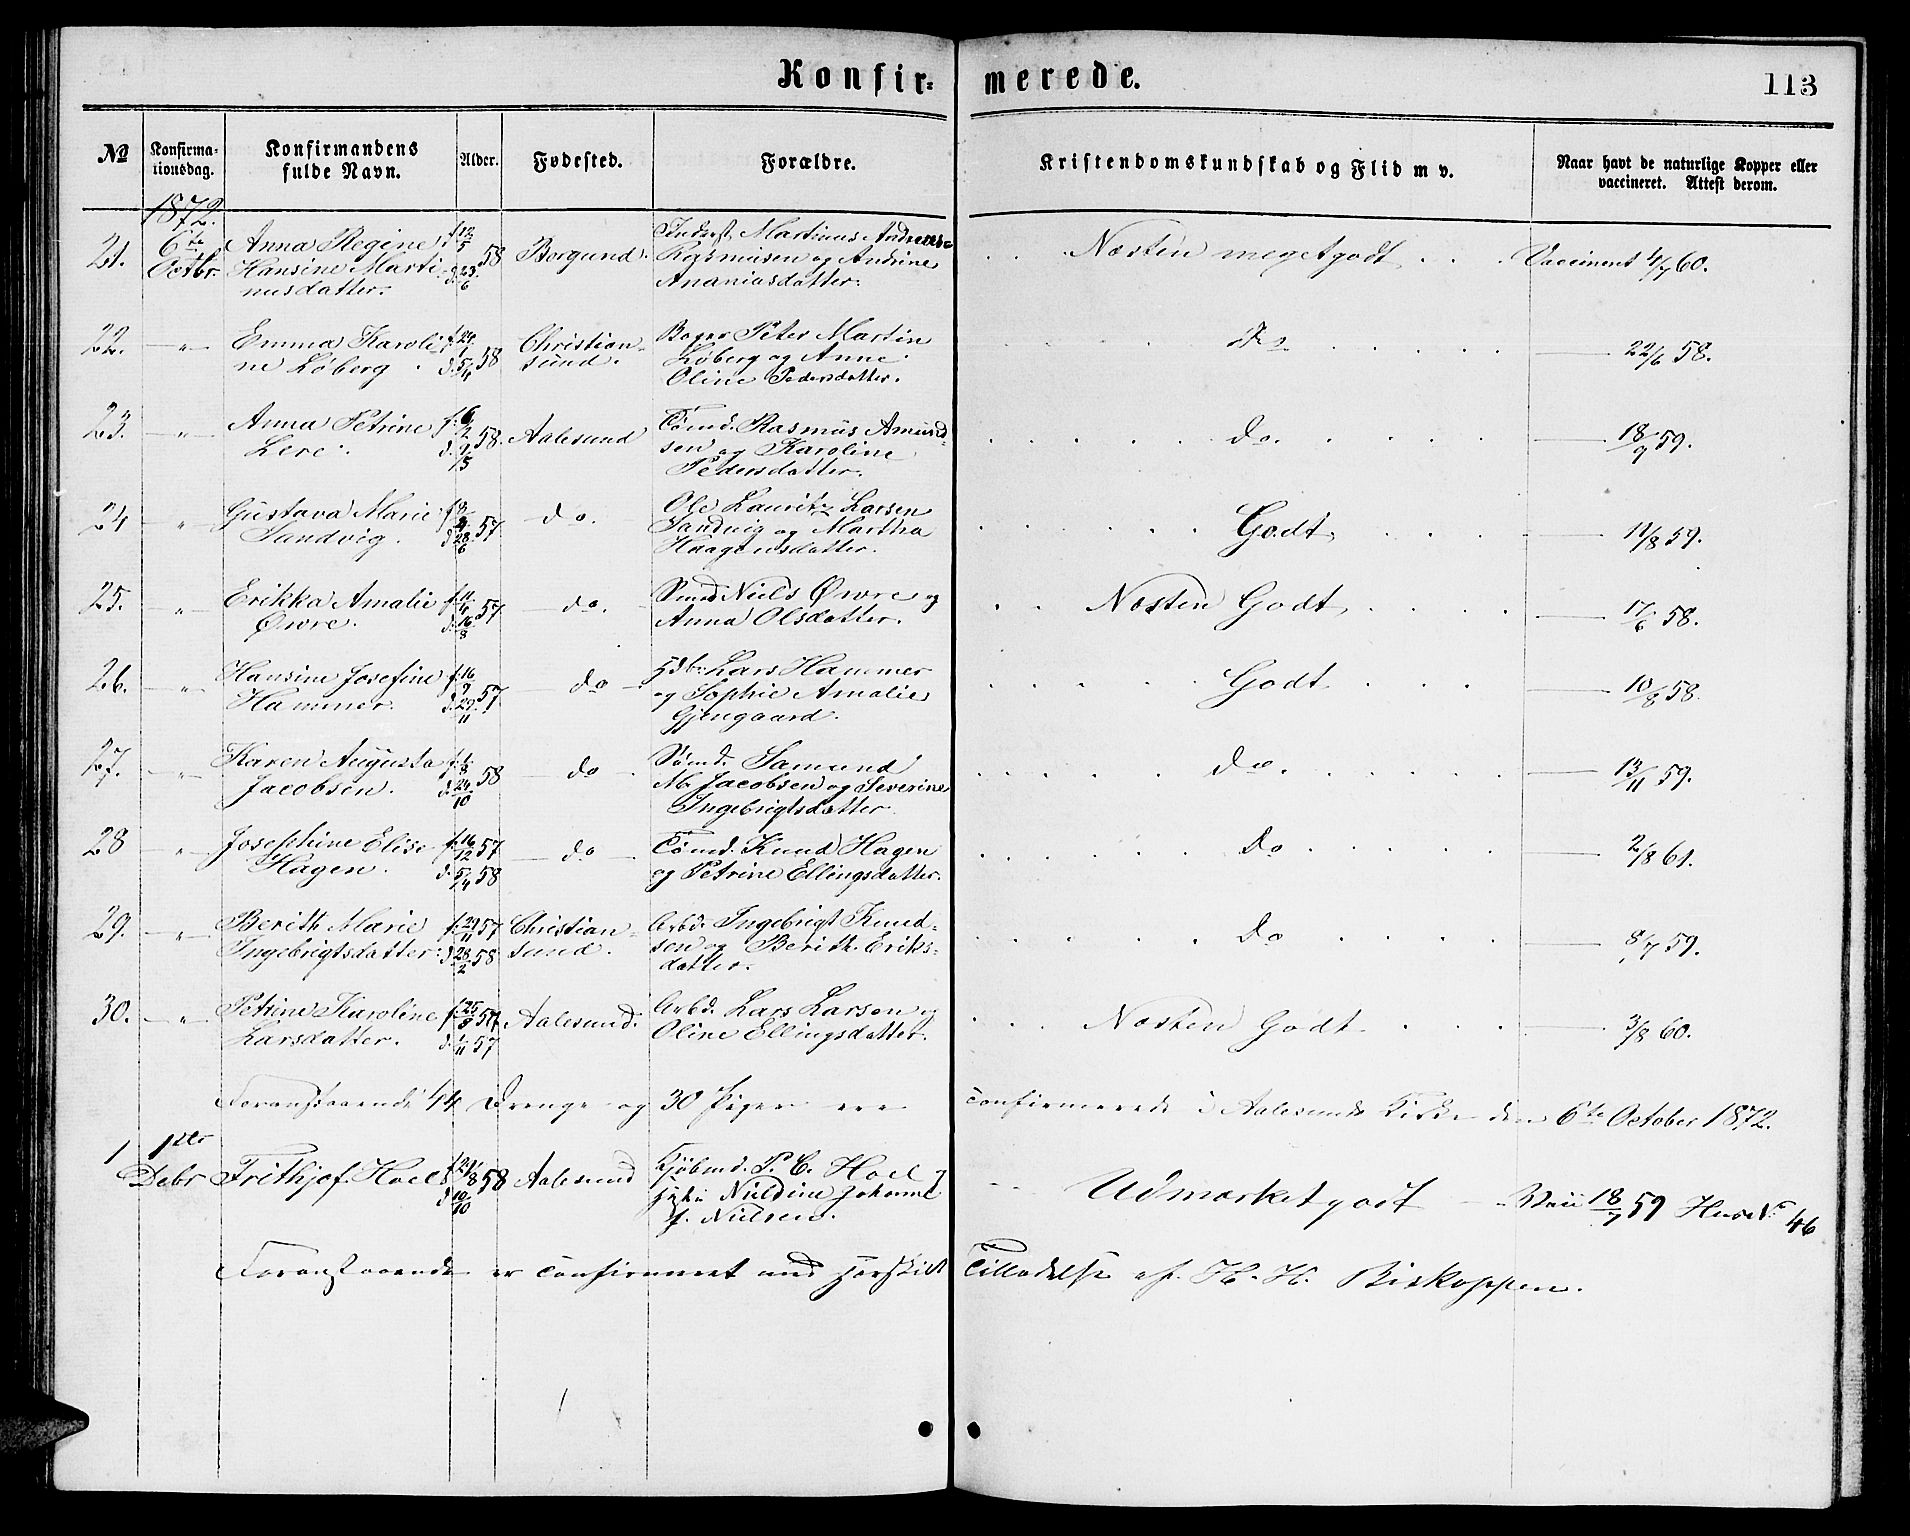 Konfir- merede. 113
№ Konfirma-tionsdag. Konfirmandens fulde Navn. Alder. Fødested. Forældre. Kristendomskundskab og Flid m v. Naar havt de naturlige Kopper eller vaccineret. Attest derom.
1872.
21. 6te Anna Regine f. 12/5 58 Borgund. Inderst Martinus Andreas Næsten meget godt Vaccineret 4/7 60.
Octbr. Hansine Marti d. 23/6 Rasmusen og Andrine
nusdatter. Ananiasdatter.
22. " Emma Karoli 58 Christian- Bager Peter Martin Do 22/6 58.
ne Løberg. d. 5/4 sund. Løberg og Anne
Oline Pedersdatter.
23. " Anna Petrine f. 6/2 58. Aalesund Tømd. Rasmus Amund- do. 18/9 59.
Lere. sen og Karoline
Pedersdatter.
24 " Gustava Marie 57 do. Ole Lauritz Larsen Godt 11/8 59.
Sandvig. d. 28/6 Sandvig og Martha
Haagensdatter.
25. " Erikka Amalie 57 do. Smed Niels Øwre og Næsten Godt 17/6 58.
Øwre. d. 16/8 Anna Olsdatter.
26. " Hansine Josefine f. 16/9 57 do Lars Hammer Godt 10/8 58.
Hammer. d. 29/11 og Sophie Amalie
Gjengaard.
27. " Karen Augusta f. 1/8 58 do Sømd. Samund Do. 13/11 59.
Jacobsen. d. 24/10 M. Jacobsen og Severine
Ingebrigtsdatter.
28 " Josephine Elise f. 16/12 57 do Tømd. Knud Hagen Do 2/8 61.
Hagen. d. 5/4 58 og Petrine Ellingsdatter.
29. " Berith Marie f. 29/11 57 Christian- Arbd. Ingebrigt Knud- Do 8/7 59.
Ingebrigtsdatter. d. 28/2 58 sund. sen og Berith Eriks-
datter.
30. " Petrine Karoline f. 25/8 57 Aalesund. Arbd. Lars Larsen og Næsten Godt 3/8 60.
Larsdatter. d. 1/11 57 Oline Ellingsdatter.
Foranstaaende 44 Drenge og 30 Piger ere confirmerede i Aalesunds Kirke den 6te October 1872.
1 1ste
Debr Frithjof Hoel 58 Aalesund Kjøbmd. P. C. Hoel Udmærket godt 18/7 59 Huse № 46
d. 10/10 Nieldine Johanne
f. Nielsen.
Foranstaaende er confirmeret med særskilt Tilladelse af H. H. Biskoppen.